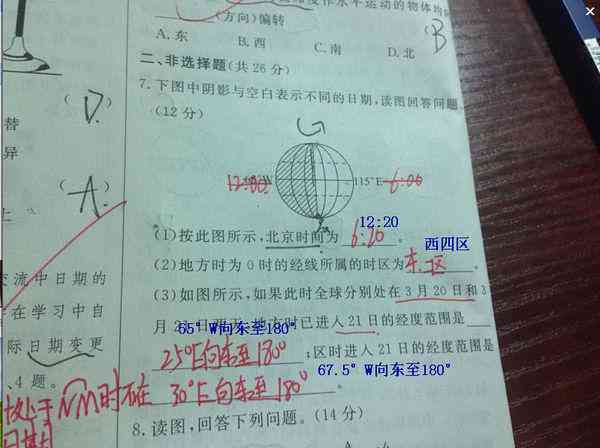 (方向)偏转
A.东 B.西 C.南 D.北
B
二、非选择题(共26分)
7.下图中阴影与空白表示不同的日期,读图回答问题。
(12分)
( D. )
替
异
( A. )
上
12:00 W 115°E 6:00
12:20
(1)按此图所示,北京时间为 6:20 。
西四区
(2)地方时为0时的经线所属的时区为 东 区 。
(3)如图所示,如果此时全球分别处在3月20日和3
月21日
地方时已进入21日的经度范围是
65°W向东至180°
25°E向东至180° ;区时进入21日的经度范围是
67.5°W向东至180°
30°E向东至180° 。
流中日期的
在学习中自
际日期变更
、4题。
8.读图,回答下列问题。(14分)